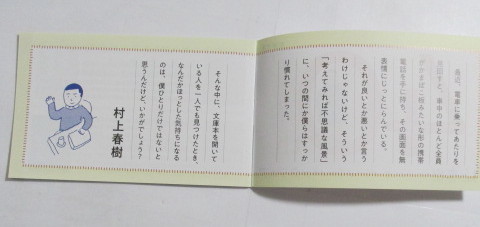 最近、電車に乗ってあたりを
見回すと、車中のほとんど全員
がかまぼこ板みたいな形の携帯
電話を手に持ち、その画面を無
表情にじっとにらんでいる。
それが良いとか悪いとか言う
わけじゃないけど、そういう
「考えてみれば不思議な風景」
に、いつの間にか僕らはすっか
り慣れてしまった。
そんな中に、文庫本を開いて
いる人を一人でも見つけたとき、
なんだかほっとした気持ちになる
のは、僕ひとりだけではないと
思うんだけど、いかがでしょう?
村上春樹